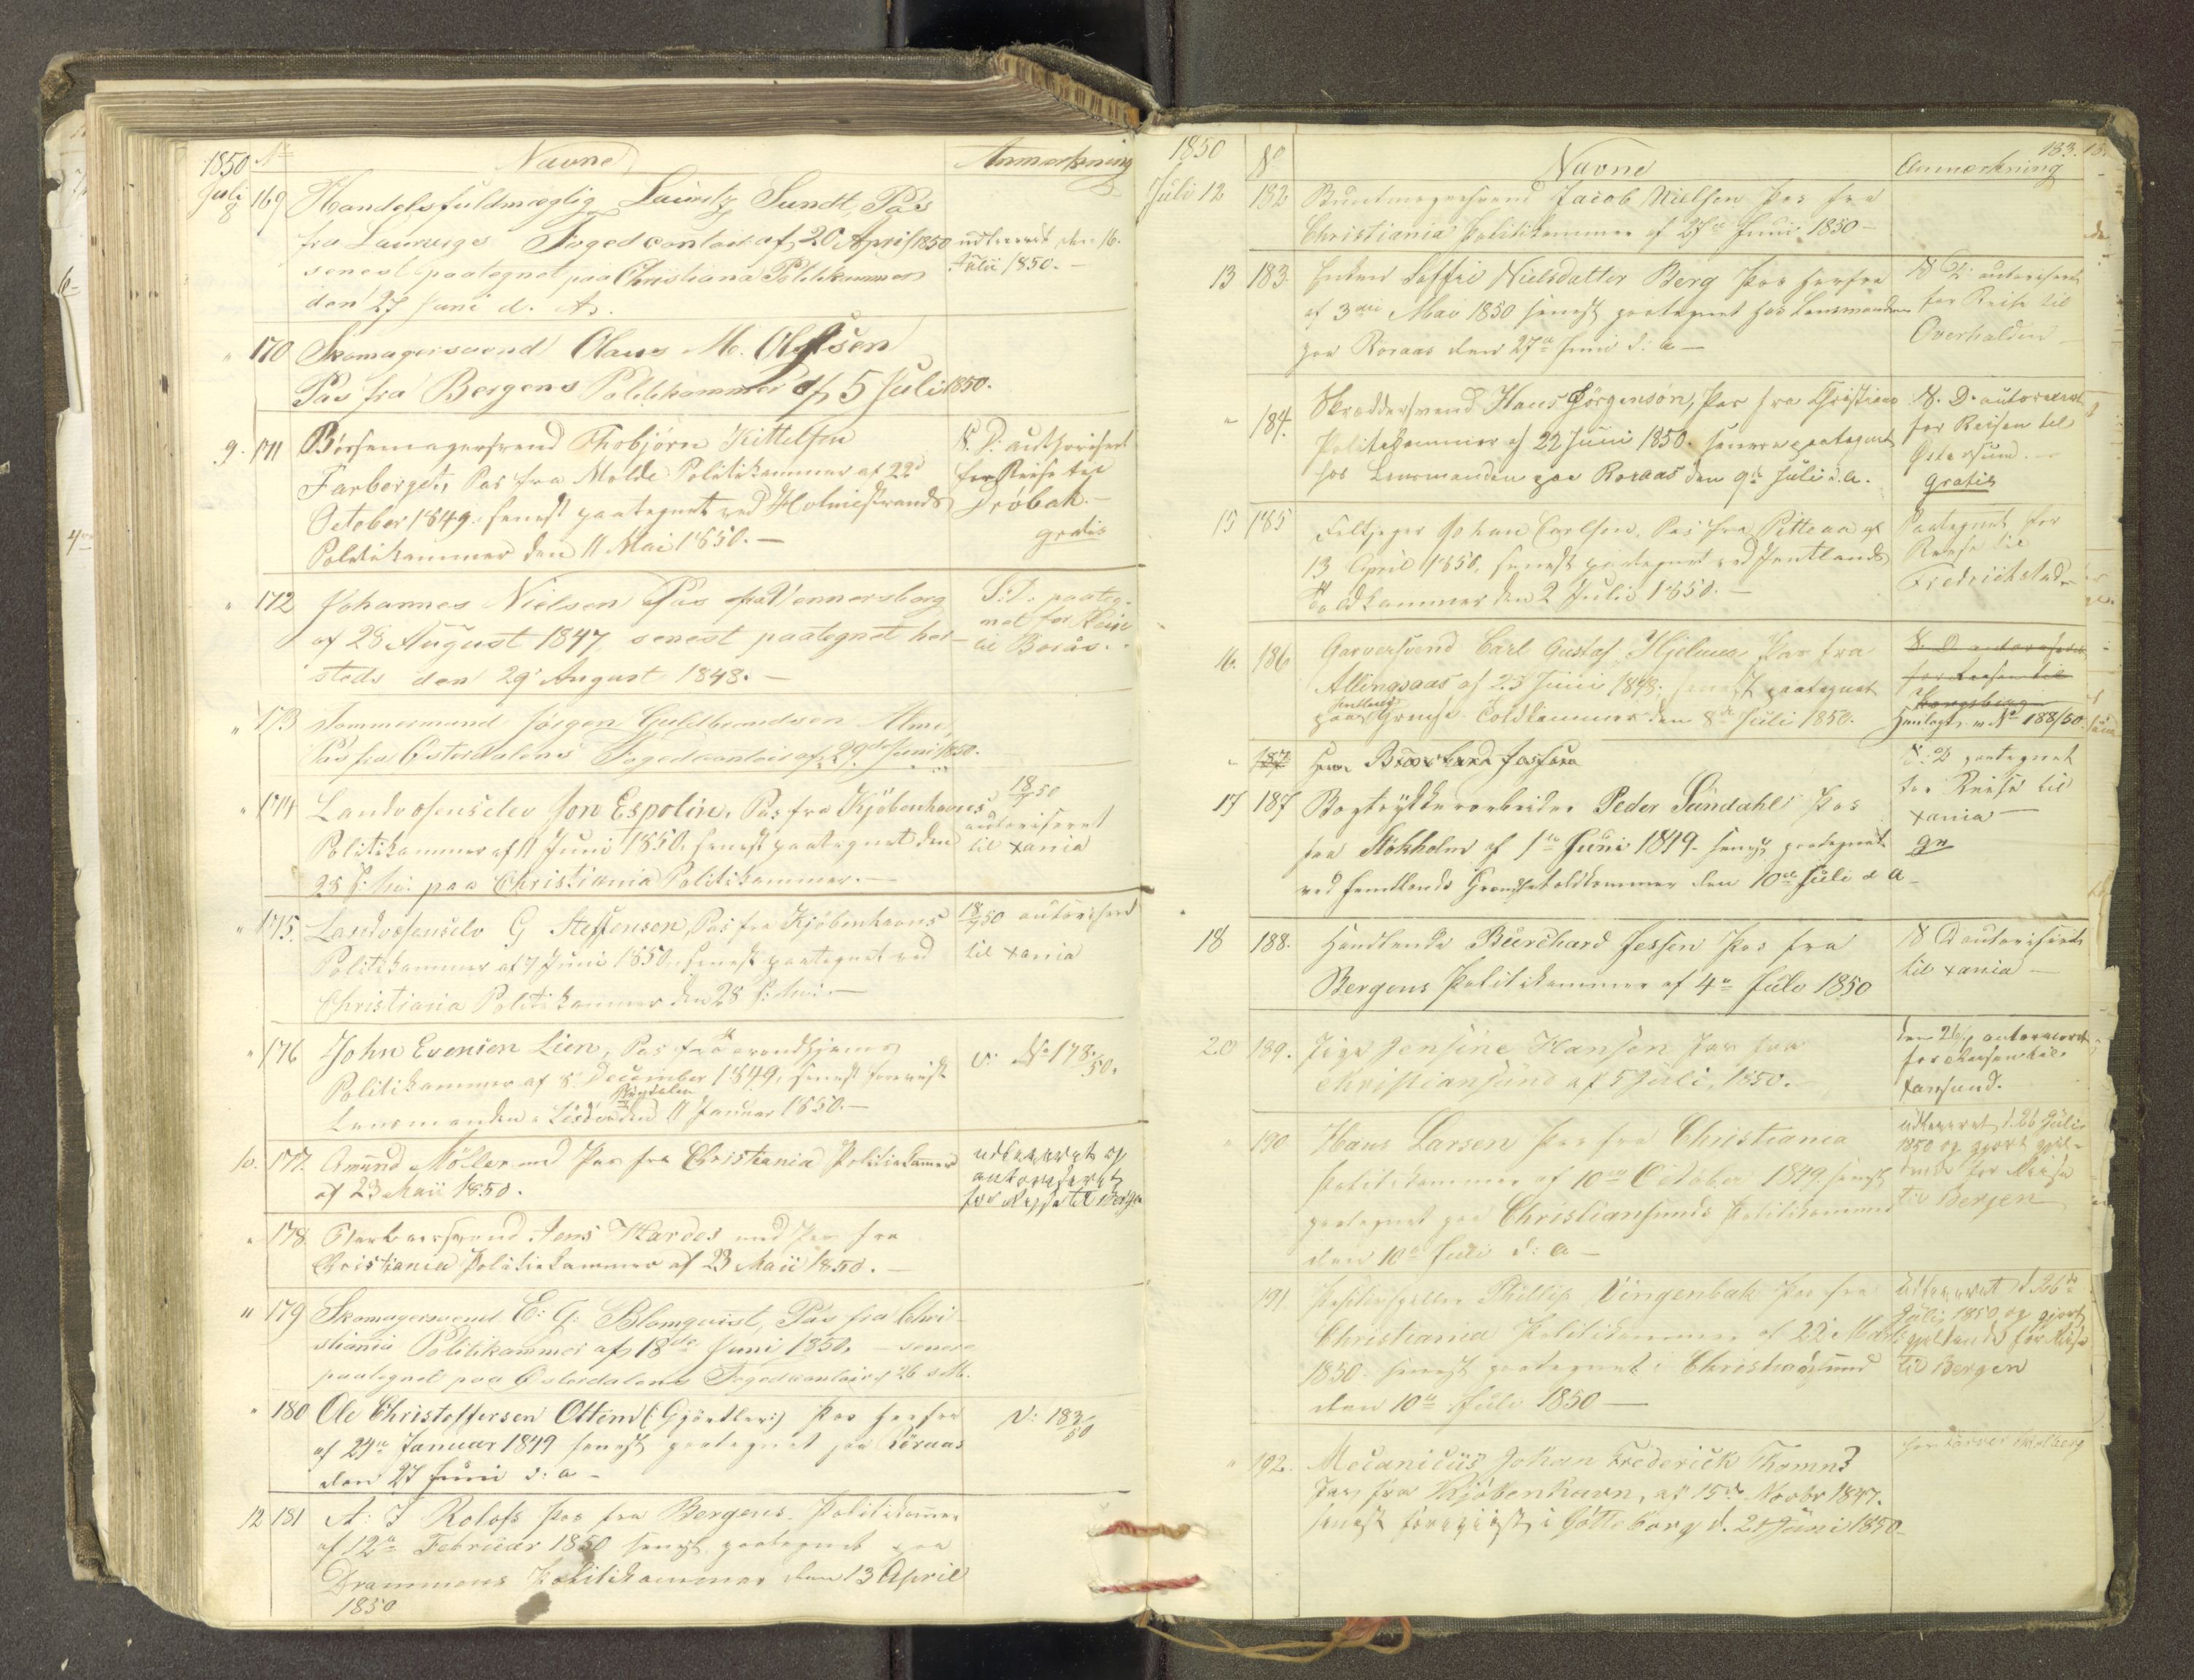 1850 No Navne Anmærkning
Juli 8 169 Handelsfuldmægtig Lauritz Sundt, Pas
fra Laurvigs Fogedcontoir af 20 April 1850 udleveret den 16.
senest paategnet paa Christiania Politikammer Julii 1850. -
den 27 Juni d. A.
" 170 Skomagersvend Olaus M. Olsen
Pas fra Bergens Politikammer af 5 Juli 1850.
9. 171 Børsemagersvend Thobjörn Kittelsen S. D. authoriseret
Farberget, Pas fra Molde Politikammer af 22d for Reise til
October 1849. senest paategnet ved Holmestrands Dröbak. -
Politikammer den 11 Mai 1850. - gratis
" 172 Johannes Nielsen Pas fra Vennersborg S. D. paateg-
af 28 August 1847, senest paategnet her- net for Reise
steds den 29 August 1848. - til Borås.
" 173 Tømmermand Jörgen Guldbrandsen Alme,
Pas fra Østerdalens Fogedcontoir af 29de Juni 1850.
" 174 Landvæsenselev Jon Espolin, Pas fra Kjöbenhavns 18/7 50
Politikammer af 11 Juni 1850. senest paategnet den autoriseret
28 s: M: paa Christiania Politikammer. - til Xania
" 175. Landvæsenselv G Steffensen, Pas fra Kjöbenhavns 18/7 50 autoriseret
Politikammer af 7 Juni 1850. senest paategnet ved til Xania
Christiania Politikammer den 28 s: M: -
" 176 John Evensen Lien, Pas fra Trondhjems v: No 178/50.
Politikammer af 8 December 1849, senest forevist
Lensmanden i den 11 Januar 1850. -
10. 177. Amund Möller med Pas fra Christiania Politiekammer udleveret og
af 23 Maii 1850. autoriseret
for Rejse til Bergen
" 178 Garversvend Jens Hardes med Pas fra
Christiania Politiekammer af 23 Maii 1850. -
11 179 Skomagersvend E: G: Blomqvist, Pas fra Chri-
stiania Politikammer af 18de Juni 1850, - senere
paategnet paa Østerdalens Fogedcontoir af 26 s. M.
" 180 Ole Christoffersen Ottem (: Gjörtler:) Pas herfra V: 183/50
af 24de Januar 1849 senest paategnet paa Röraas
den 27 Juni d: a -
12 181 A: J Roloff Pas fra Bergens Politikammer
af 12te Februar 1850 senest paategnet paa
Drammens Politikammer den 13 April
1850
1850 No Navne Anmærkning 183.
Juli 12 182 Buntmagersvend Jacob Nielsen Pas fra
Christiania Politikammer af 27de Juni 1850 -
13 183. Enken Nielsdatter Berg Pas herfra S D: autoriseret
af 3die Mai 1850 senest paategnet hos Lensmanden for Reise til
paa Röraas den 27de Juni d: a - Overhalden -
" 184. Skreddersvend Hans Jörgensön, Pas fra Christiania S. D. autoriseret
Politikammer af 22 Juni 1850. senere paategnet for Reisen til
hos Lensmanden paa Roraas den 9de Juli d. a. Østersund. -
gratis
15 185 Feltjeger Johan Carlson, Pas fra Pitteaa af Paategnet for
13 April 1850, senest paategnet ved Jemtlands Reise til
Toldkammer den 2 Julii 1850. - Fredrichstad.
16. 186 Garversvend Carl Gustaf Hjelmer Pas fra S. D autoriseret
Allingsaas af 23 Juni 1848. senest paategnet for Reisen til
paa Jemtlands Grænse Toldkammer den 8de Juli 1850. Kongsberg
Henlagt v. No 188/50.
" 187 Herr Burchard Jessen S: D paategnet
17 187 Bogtrykkerarbeider Peder Sundahl Pas for Reise til
fra Stokholm af 1te Juni 1849. senest paategnet Xania -
ved Jemtlands Grændsetoldkammer den 10de Juli d a - gr
18 188. Handlende Burchard Jessen Pas fra S D autoriseret
Bergens Politikammer af 4de Juli 1850 til Xania -
20 189. Pige Jensine Hansen Pas fra den 26/7 autoriseret
Christiansund af 5 Juli, 1850. for Reisen til
Xansund.
" 190 Hans Larsen Pas fra Christiania udleveret d. 26 Juli
Politikammer af 10de October 1849. senest 1850 og gjort gjel-
paategnet paa Christiansunds Politikammer dende for Reise
den 10de Juli d: a - til Bergen
191. Phillip Vingenbak Pas fra Udleveret d. 26de
Christiania Politikammer af 22 Marts Juli 1850 og gjort
1850. senest paategnet i Christiansund gjeldende for Reise
den 10de Juli 1850 - til Bergen
" 192. Mecanicus Johan Frederick Thomns
Pas fra Kjöbenhavn, af 15de Novbr 1847.
senest foreviist i Götteborg d. 21 Juni 1850